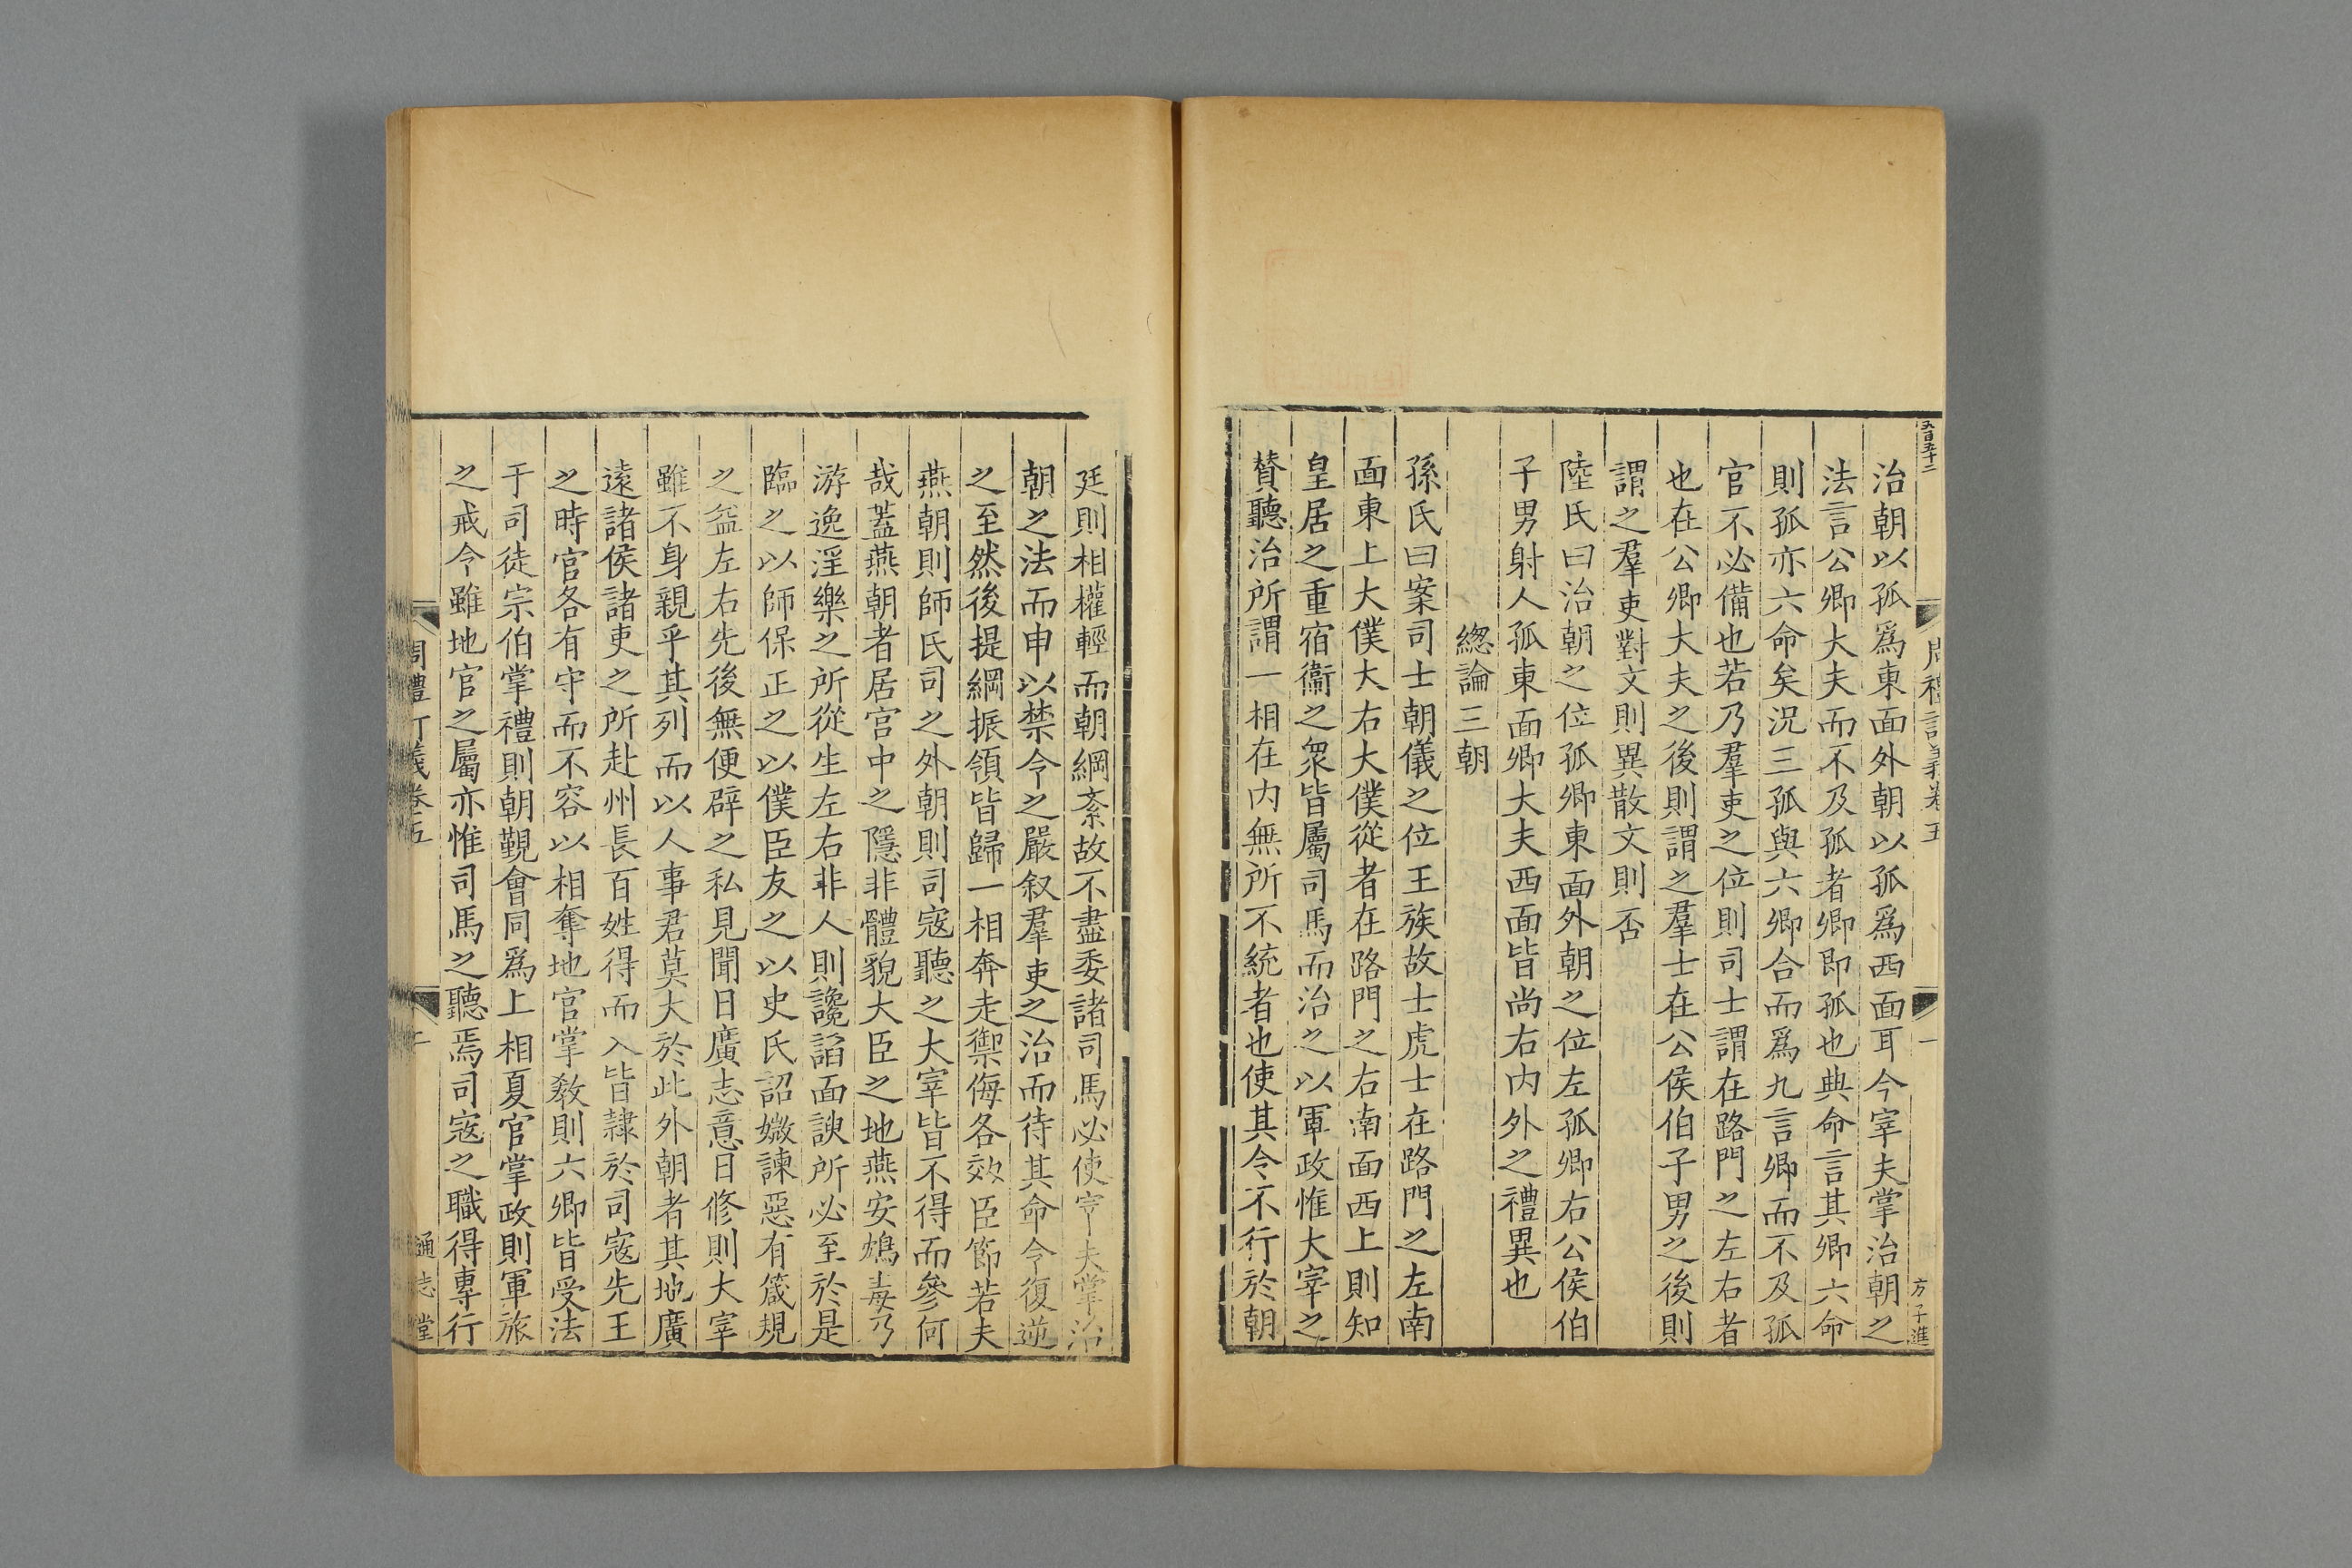 五百五十二
周禮訂義卷五
一
方子進
治朝以孤爲東面外朝以孤爲西面耳今宰夫掌治朝之
法言公卿大夫而不及孤者卿即孤也典命言其卿六命
則孤亦六命矣況三孤與六卿合而爲九言卿而不及孤
官不必備也若乃羣吏之位則司士謂在路門之左右者
也在公卿大夫之後則謂之羣士在公侯伯子男之後則
謂之羣吏對文則異散文則否
陸氏曰治朝之位孤卿東面外朝之位左孤卿右公侯伯
子男射人孤東面卿大夫西面皆尚右内外之禮異也
緫論三朝
孫氏曰案司士朝儀之位王族故士虎士在路門之左南
面東上大僕大右大僕從者在路門之右南面西上則知
皇居之重宿衞之衆皆屬司馬而治之以軍政惟大宰之
賛聽治所謂一相在内無所不統者也使其令不行於朝
廷則相權輕而朝綱紊故不盡委諸司馬必使宰夫掌治
朝之法而申以禁令之嚴叙羣吏之治而待其命令復逆
之至然後提綱振領皆歸一相奔走禦侮各效臣節若夫
燕朝則師氏司之外朝則司寇聽之大宰皆不得而參何
哉蓋燕朝者居宫中之隱非體貌大臣之地燕安鴆毒乃
游逸淫樂之所從生左右非人則讒諂面諛所必至於是
臨之以師保正之以僕臣友之以史氏詔媺諫惡有箴規
之益左右先後無便辟之私見聞日廣志意日修則大宰
雖不身親乎其列而以人事君莫大於此外朝者其地廣
遠諸侯諸吏之所赴州長百姓得而入皆隷於司寇先王
之時官各有守而不容以相奪地官掌敎則六卿皆受法
于司徒宗伯掌禮則朝覲會同爲上相夏官掌政則軍旅
之戒令雖地官之屬亦惟司馬之聽焉司寇之職得專行
周禮訂義卷五
二
通志堂